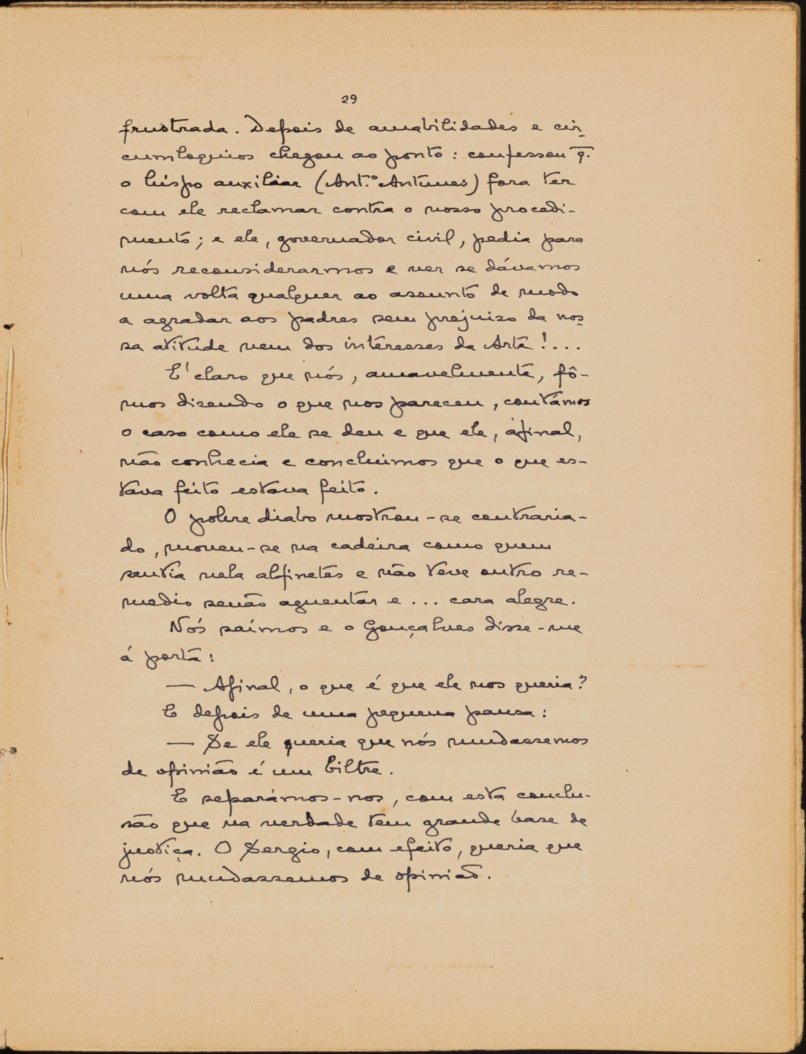 29
frustrada. Depois de amabilidades e cir-
cumloquios chegou ao ponto: confessou q.
o bispo auxiliar (Ant.º Antunes) fora ter
com ele reclamar contra o nosso procedi-
mento; e ele, governador civil, pedia para
nós reconsiderarmos e ver se dávamos
uma volta qualquer ao assunto de modo
a agradar aos padres sem prejuizo da nos-
sa atitude nem dos interesses da Arte!...
E' claro que nós, amavelmente, fô-
mos dizendo o que nos pareceu, contámos
o caso como ele se deu e que ele, afinal,
não conhecia e concluimos que o que es-
tava feito estava feito.
O pobre diabo mostrou-se contraria-
do, moveu-se na cadeira como quem
sentia nela alfinetes e não teve outro re-
medio senão aguentar e... cara alegre.
Nós saímos e o Gonçalves disse-me
á porta:
— Afinal, o que é que ele nos queria?
E depois de uma pequena pausa:
— Se ele queria que nós mudassemos
de opinião é um biltre.
E separámos-nos, com esta conclu-
são que na verdade tem grande base de
justiça. O Sergio, com efeito, queria que
nós mudassemos de opinião.